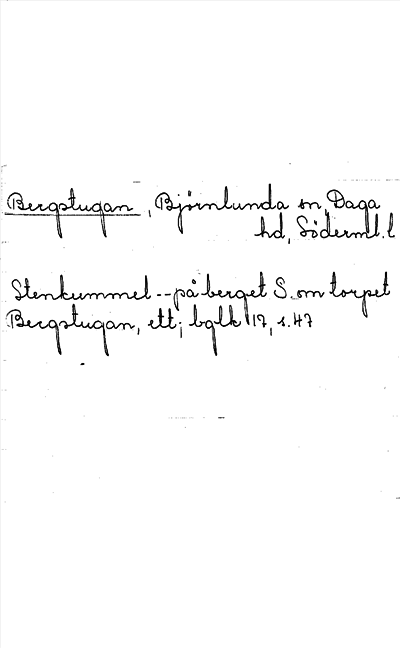 Bergstugan, Björnlunda sn, Daga
hd, Söderml. l
Stenkummel -- på berget S. om torpet
Bergstugan, ett; bglk 17, s. 47